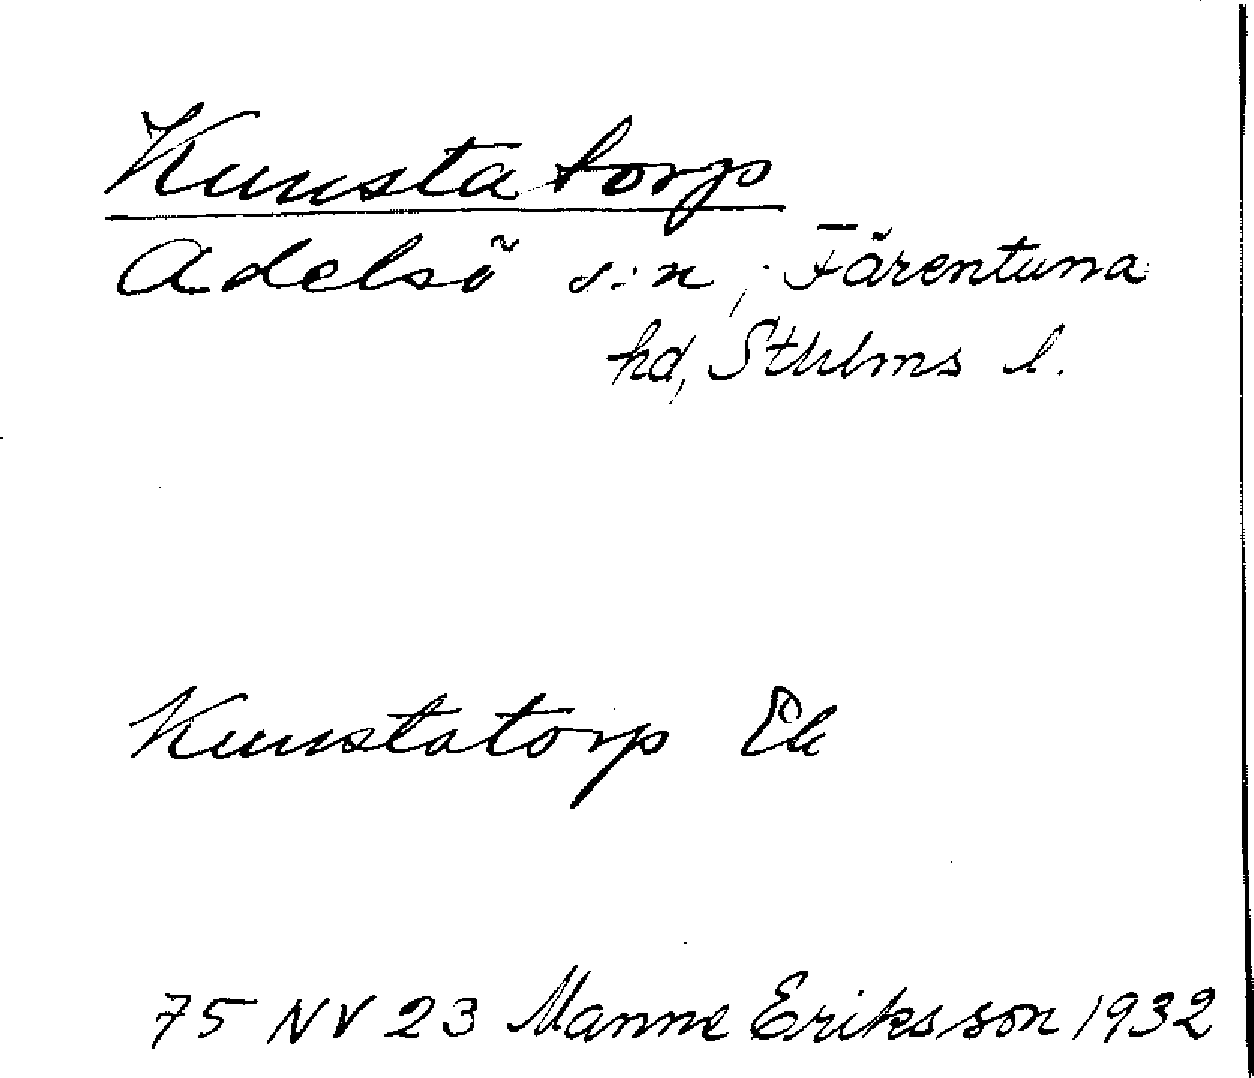 Kunstatorp
Adelsö s:n, Färentuna
hd, Sthlms l.
Kunstatorp Ek
75 NV 23 Manne Eriksson 1932